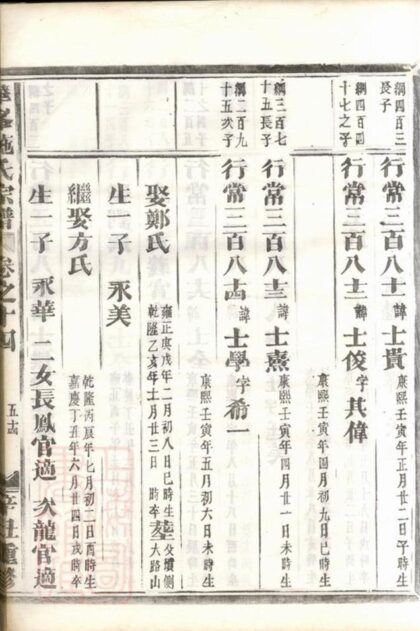 綱四百三
長子
行常三百八十一 諱士貴
康熙壬寅年二月廿二日子時生
綱四百四
十七之子
行常三百八十二 諱士俊 字其偉
康熙壬寅年四月初九日巳時生
綱三百七
十五長子
行常三百八十三 諱士熹
康熙壬寅年四月廿一日未時生
綱二百九
十五次子
行常三百八十四 諱士學 字希一
康熙壬寅年五月初六日未時生
娶鄭氏
雍正庚戌年二月初八日巳時生
乾隆乙亥年十一月廿三日 時卒
塟父墳側
大路山
生一子 永美
繼娶方氏
乾隆丙辰年七月初二日酉時生
嘉慶丁丑年六月廿四日戌時卒
生一子 永華 二女長鳳官適 次龍官適
華峯施氏宗譜 卷之十四 五十四 辛社重修